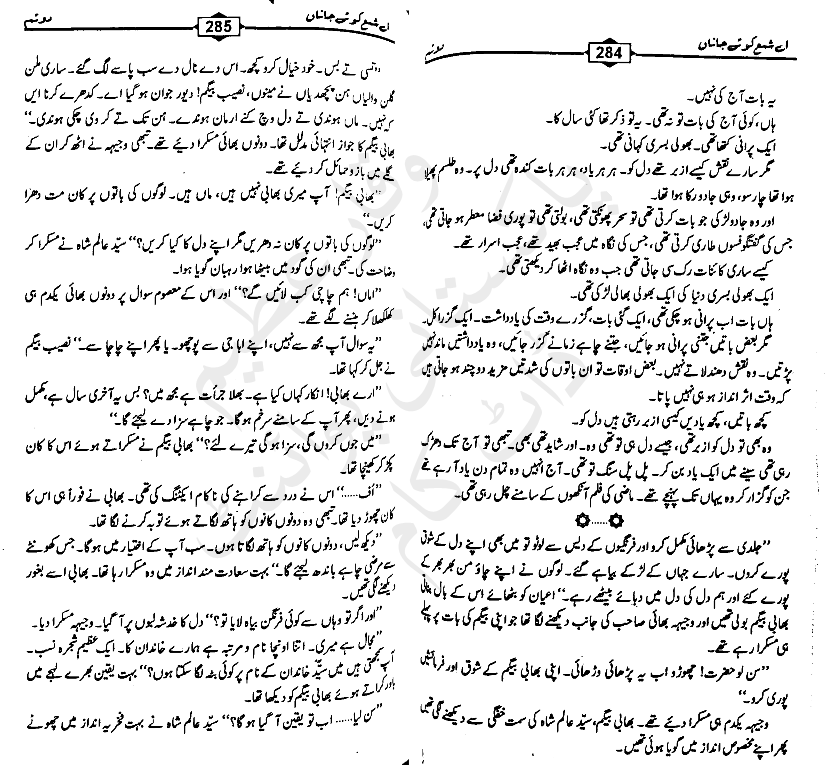 اے شمع کوئے جاناں 284
یہ بات آج کی نہیں۔
ہاں، کوئی آج کی بات تو نہ تھی۔ یہ تو ذکر تھا کئی سال کا۔
ایک پرانی کتھا تھی۔ بھولی بسری کہانی تھی۔
مگر سارے نقش کیسے ازبر تھے دل کو۔ ہر ہر یاد، ہر ہر بات کندہ تھی دل پر۔ وہ طلسم پھیلا
ہوا تھا چار سو، وہی جادو رکا ہوا تھا۔
اور وہ جادو لڑکی جو بات کرتی تھی تو سحر پھونکتی تھی، بولتی تھی تو پوری فضا معطر ہو جاتی تھی،
جس کی گفتگو فسوں طاری کرتی تھی، جس کی نگاہ میں عجب بھید تھے، عجب اسرار تھے۔
کیسے ساری کائنات رک سی جاتی تھی جب وہ نگاہ اٹھا کر دیکھتی تھی۔
ایک بھولی بسری دنیا کی ایک بھولی بھالی لڑکی تھی۔
ہاں بات اب پرانی ہو چکی تھی، ایک گئی بات، گزرے وقت کی یادداشت۔ ایک گزرا کل۔
مگر بعض باتیں جتنی پرانی ہو جائیں، جتنے چاہے زمانے گزر جائیں، وہ یادداشتیں ماند نہیں
پڑتیں۔ وہ نقش دھندلاتے نہیں۔ بعض اوقات تو ان باتوں کی شدتیں مزید دو چند ہو جاتی ہیں
کہ وقت اثر انداز ہو ہی نہیں پاتا۔
کچھ باتیں، کچھ یادیں کیسی ازبر رہتی ہیں دل کو۔
وہ بھی تو دل کو ازبر تھی، جیسے دل ہی تو تھی وہ۔ اور شاید تھی بھی۔ تبھی تو آج تک دھڑک
رہی تھی سینے میں ایک یاد بن کر۔ پل پل سنگ تو تھی۔ آج انہیں وہ تمام دن یاد آ رہے تھے
جن کو گزار کر وہ یہاں تک پہنچے تھے۔ ماضی کی فلم آنکھوں کے سامنے چل رہی تھی۔
”جلدی سے پڑھائی مکمل کرو اور فرنگیوں کے دیس سے لوٹو تو میں بھی اپنے دل کے شوق
پورے کروں۔ سارے جہاں کے لڑکے بیاہے گئے۔ لوگوں نے اپنے چاؤ من بھر بھر کے
پورے کئے اور ہم دل کی دل میں دبائے بیٹھے رہے۔“ اعیان کو بٹھائے اس کے بال بناتی
بھابی بیگم بولی تھیں اور وجیہہ بھائی صاحب کی جانب دیکھنے لگا تھا جو اپنی بیگم کی بات پر پہلے
ہی مسکرا رہے تھے۔
”سن لو حضرت! چھوڑو اب یہ پڑھائی وڑھائی۔ اپنی بھابی بیگم کے شوق اور فرمائشیں
پوری کرو۔“
وجیہہ یکدم ہی مسکرا دیئے تھے۔ بھابی بیگم، سیّد عالم شاہ کی سمت خفگی سے دیکھنے لگی تھیں
پھر اپنے مخصوص انداز میں گویا ہوئی تھیں۔
اے شمع کوئے جاناں 285
”تسی تے بس۔ خود خیال کرو کچھ۔ اس دے نال دے سب پاسے لگ گئے۔ ساری ملن
ملن والیاں ہن پچھدیاں نے مینوں، نصیب بیگم! دیور جوان ہو گیا اے۔ کدھرے کرنا ایں
کہ نہیں۔ ماں ہوندی تے دل وچ کنے ارمان ہوندے۔ ہن تک تے کر وی چکی ہوندی۔“
بھابی بیگم کا جواز انتہائی مدلل تھا۔ دونوں بھائی مسکرا دیئے تھے۔ تبھی وجیہہ نے اٹھ کر ان کے
گلے میں بازو حمائل کر دیئے تھے۔
”بھابی بیگم! آپ میری بھابی نہیں ہیں، ماں ہیں۔ لوگوں کی باتوں پر کان مت دھرا
کریں۔“
”لوگوں کی باتوں پر کان نہ دھریں مگر اپنے دل کا کیا کریں؟“ سیّد عالم شاہ نے مسکرا کر
وضاحت کی۔ تبھی ان کی گود میں بیٹھا ہوا رہبان گویا ہوا۔
”اماں! ہم چاچی کب لائیں گے؟“ اور اس کے معصوم سوال پر دونوں بھائی یکدم ہی
کھلکھلا کر ہنسنے لگے تھے۔
”یہ سوال آپ مجھ سے نہیں، اپنے ابا جی سے پوچھو۔ یا پھر اپنے چاچا سے۔“ نصیب بیگم
نے جل کر کہا تھا۔
”ارے بھابی! انکار کہاں کیا ہے۔ بھلا جرأت ہے مجھ میں؟ بس یہ آخری سال ہے، مکمل
ہونے دیں، پھر آپ کے سامنے سر خم ہو گا۔ جو چاہے سزا دے لیجئے گا۔“
”میں جوں کروں گی، سزا ہو گی تیرے لئے؟“ بھابی بیگم نے مسکراتے ہوئے اس کا کان
پکڑ کر کھینچا تھا۔
”اُف......“ اس نے درد سے کراہنے کی ناکام ایکٹنگ کی تھی۔ بھابی نے فوراً ہی اس کا
کان چھوڑ دیا تھا۔ تبھی وہ دونوں کانوں کو ہاتھ لگاتے ہوئے توبہ کرنے لگا تھا۔
”دیکھ لیں، دونوں کانوں کو ہاتھ لگاتا ہوں۔ سب آپ کے اختیار میں ہو گا۔ جس کھونٹے
سے مرضی چاہے باندھ لیجئے گا۔“ بہت سعادت مند انداز میں وہ مسکرا رہا تھا۔ بھابی اسے بغور
دیکھنے لگی تھیں۔
”اور اگر تو وہاں سے کوئی فرنگن بیاہ لایا تو؟“ دل کا خدشہ لبوں پر آ گیا۔ وجیہہ مسکرا دیا۔
”مجال ہے میری۔ اتنا اونچا نام و مرتبہ ہے ہمارے خاندان کا۔ ایک عظیم شجرہ نسب۔
آپ سمجھتی ہیں میں سیّد خاندان کے نام پر کوئی بٹہ لگا سکتا ہوں؟“ بہت یقین بھرے لہجے میں
باور کراتے ہوئے بھابی بیگم کو دیکھا تھا۔
”سن لیا...... اب تو یقین آ گیا ہو گا؟“ سیّد عالم شاہ نے بہت فخریہ انداز میں چھوٹے